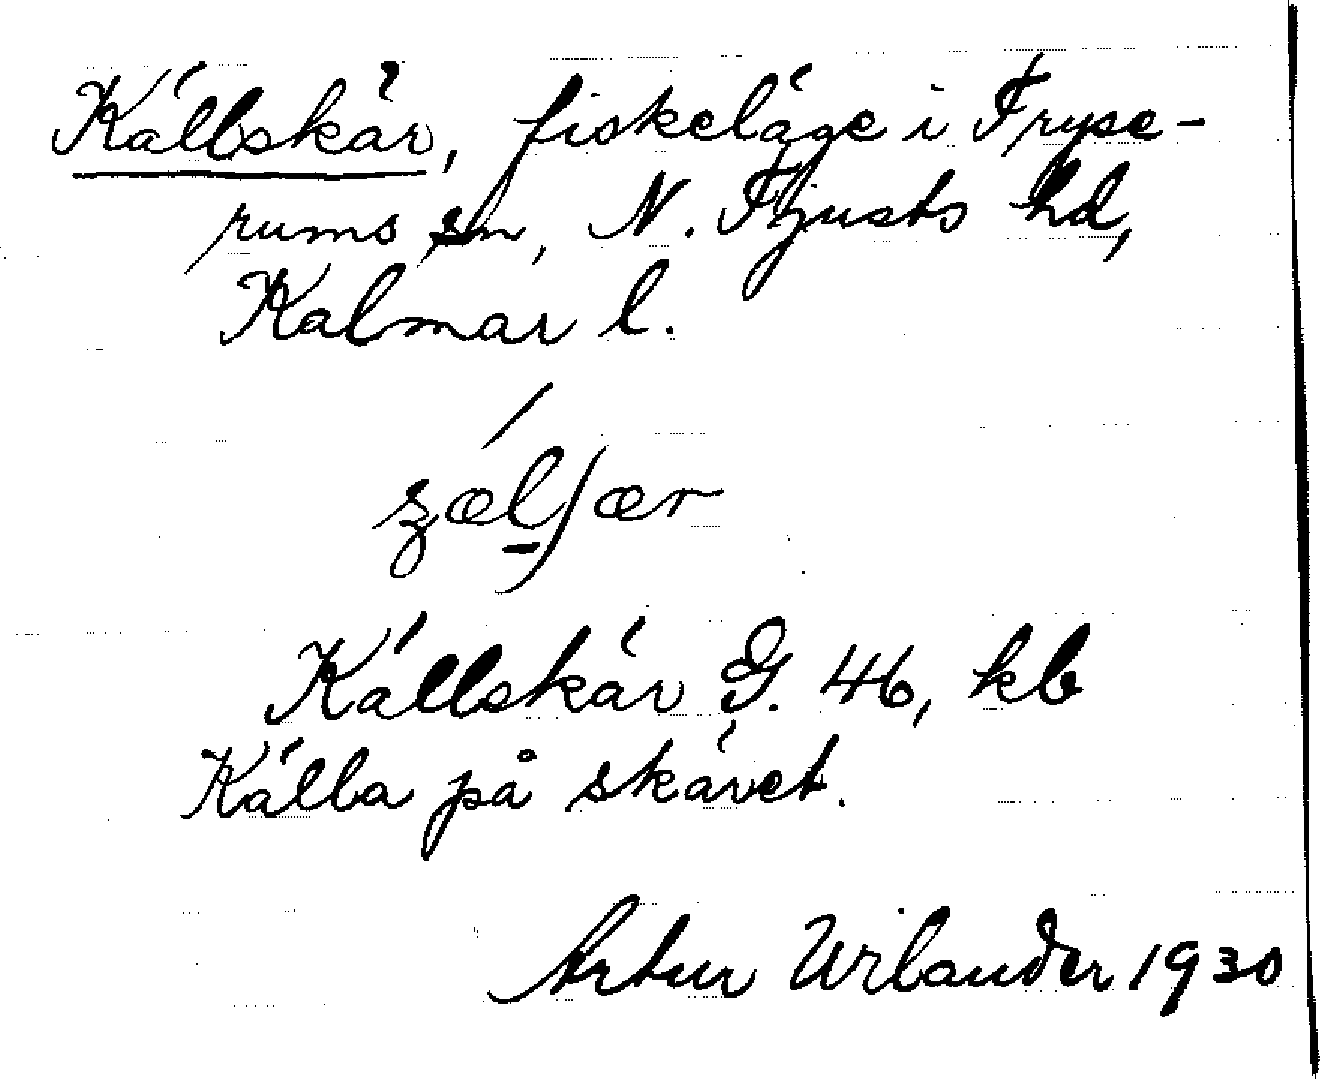 Källskär, fiskeläge i Tryse-
rums sn, N. Tjusts hd,
Kalmar l.
Källskär G. 46, kb
Källa på skäret.
Artur Wilander 1930